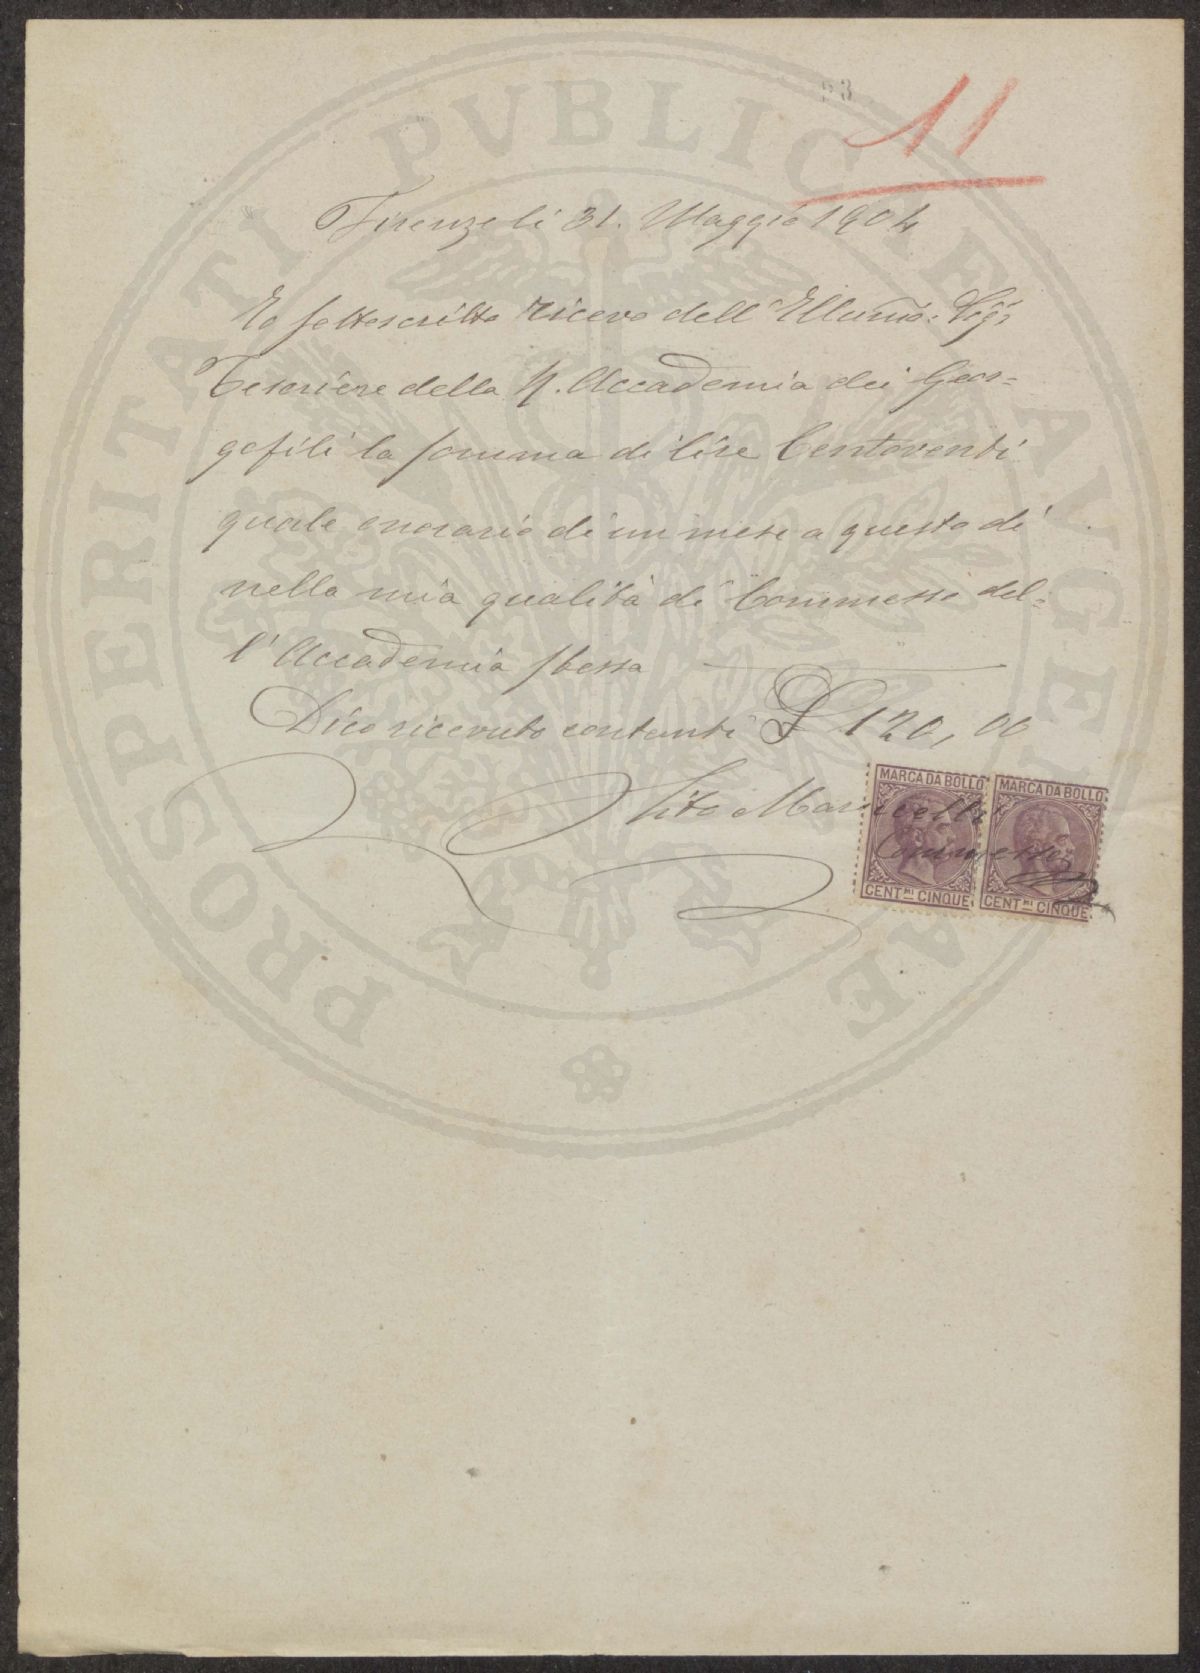 23
11
Firenze li 31. Maggio 1904
Io sottoscritto ricevo dell' Sig:
Tesoriere della R. Accademia dei Geor=
gofili la somma di lire Centoventi
quale onorario di un mese a questo dì
nella mia qualità di Commesso del=
l' Accademia stessa
Dico ricevuto contanti £ 120,00
Commesso
MARCA DA BOLLO
CENT.MI CINQUE
MARCA DA BOLLO
CENT.MI CINQUE
PROSPERITATI PVBLICAE AVGENDAE